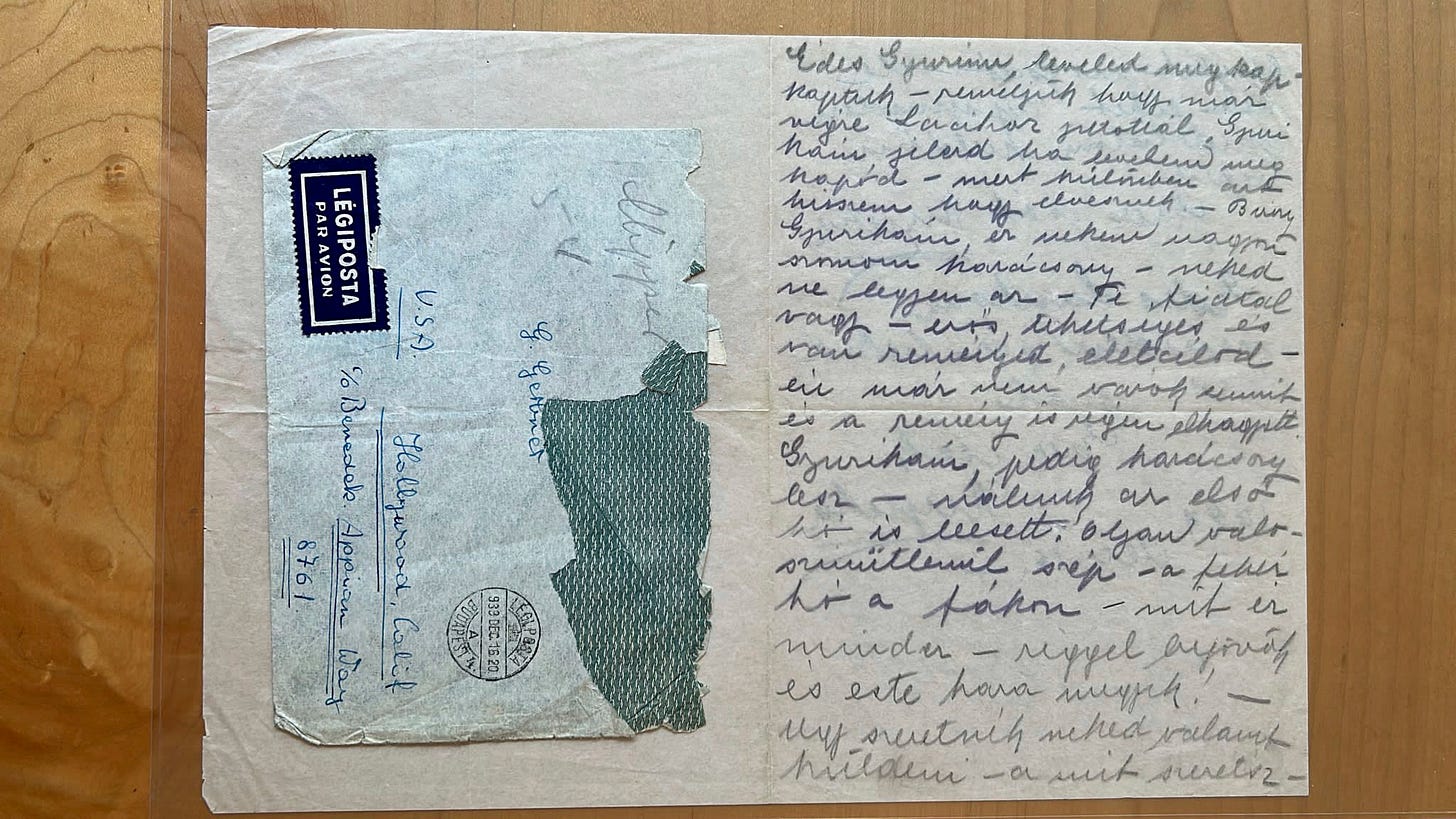 LÉGIPOSTA
PAR AVION
G. Gerbner
Hollywood, Calif
c/o Benedek. Appian Way
8761.
U.S.A.
LÉGIPOSTA
939 DEC. 16. 20
A
BUDAPEST
Édes Gyurim leveled megkap-
kaptuk – reméljük hogy már
végre Lacihoz jutottál, Gyuri
kám, jelezd ha levelem meg
kapod – mert különben azt
hiszem hogy elvesznek. –
Gyurikám, ez nekem nagyon
szomorú karácsony – neked
ne legyen az – Te fiatal
vagy – erős, tehetséges és
van reményed, életcélod –
én már nem várok semmit
és a remény is régen elhagyott.
Gyurikám, pedig karácsony
lesz – nálunk az első
hó is leesett. Olyan való-
szinütlenül szép – a fehér
hó a fákon – mit ér
minden – reggel bejövök
és este haza megyek! –
Ugy szeretnék neked valamit
küldeni – a mit szeretsz –